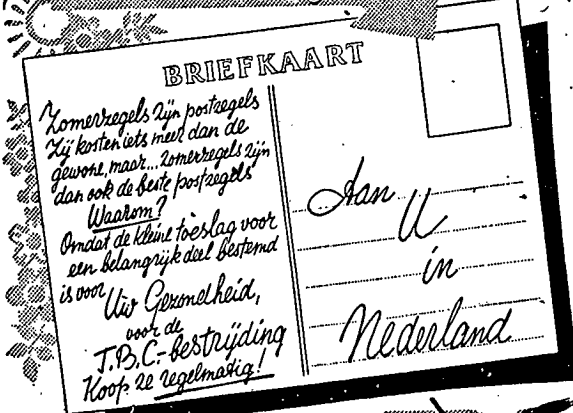 BRIEFKAART
Zomerzegels zijn postzegels
Zij kosten iets meer dan de
gewone, maar... zomerzegels zijn
dan ook de beste postzegels
Waarom?
Omdat de kleine toeslag voor
een belangrijk deel bestemd
is voor Uw Gezondheid,
voor de
T.B.C.-bestrijding
Koop ze regelmatig!
Aan
U
in
Nederland